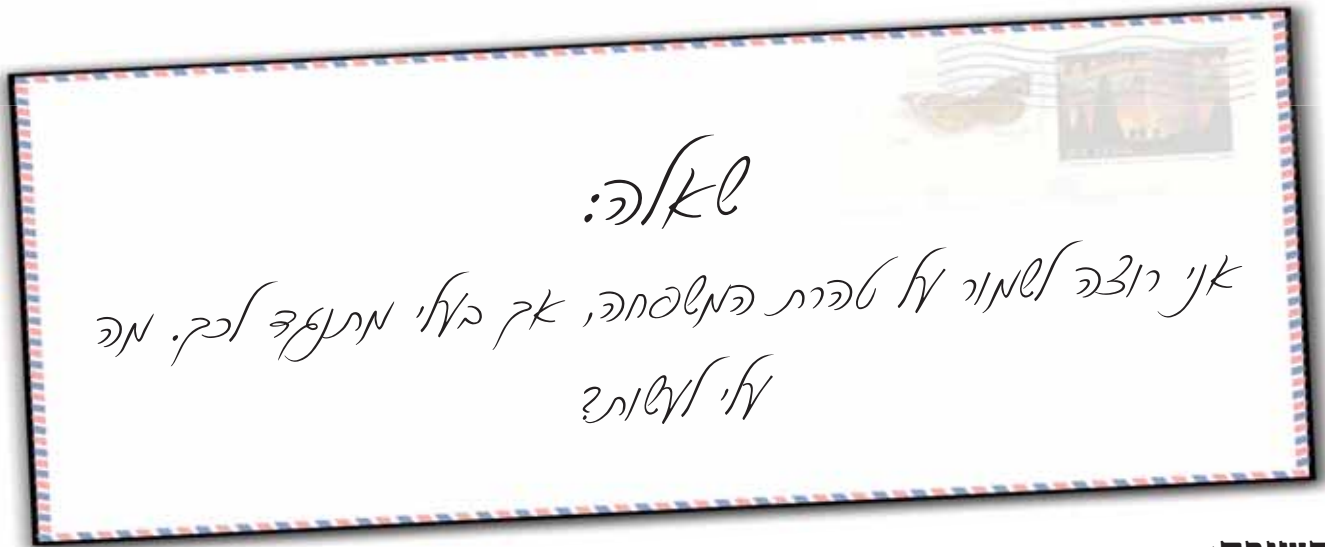 שאלה:
אני רוצה לשמור על טהרת המשפחה, אך בעלי מתנגד לכך. מה
עלי לעשות?